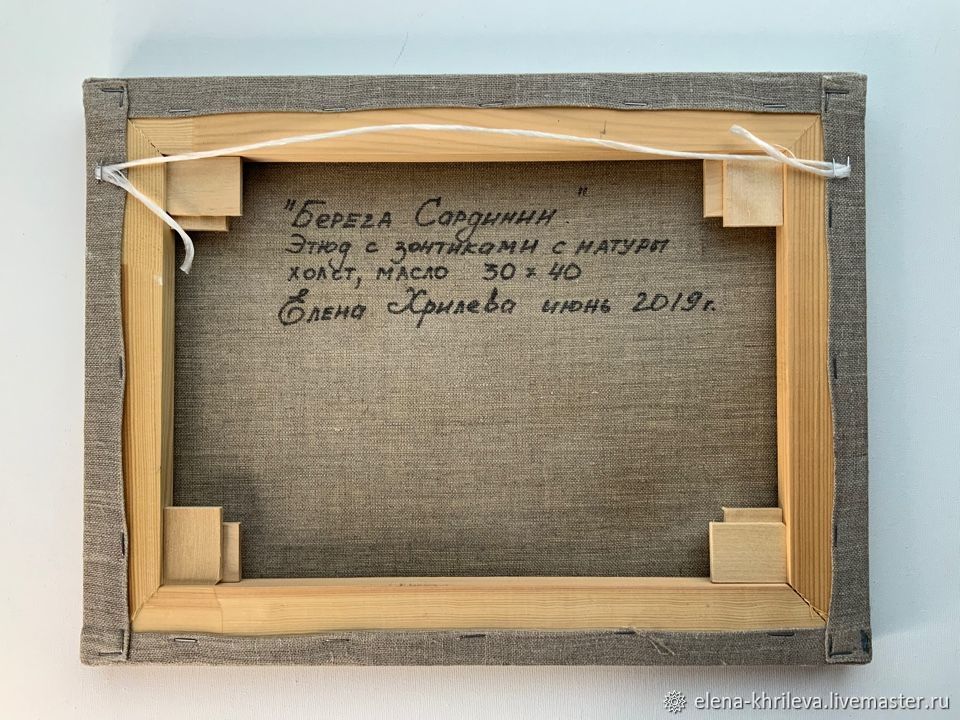 "Берега Сардинии."
Этюд с зонтиками с натуры
холст, масло 30 x 40
Елена Хрилева июнь 2019г.
elena-khrileva.livemaster.ru